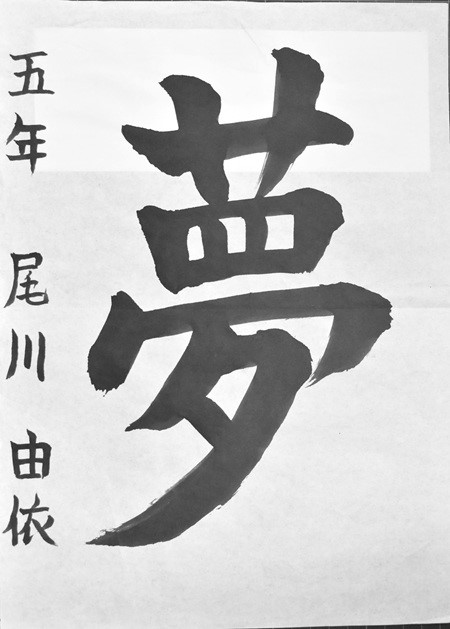 夢
五年 尾川 由依